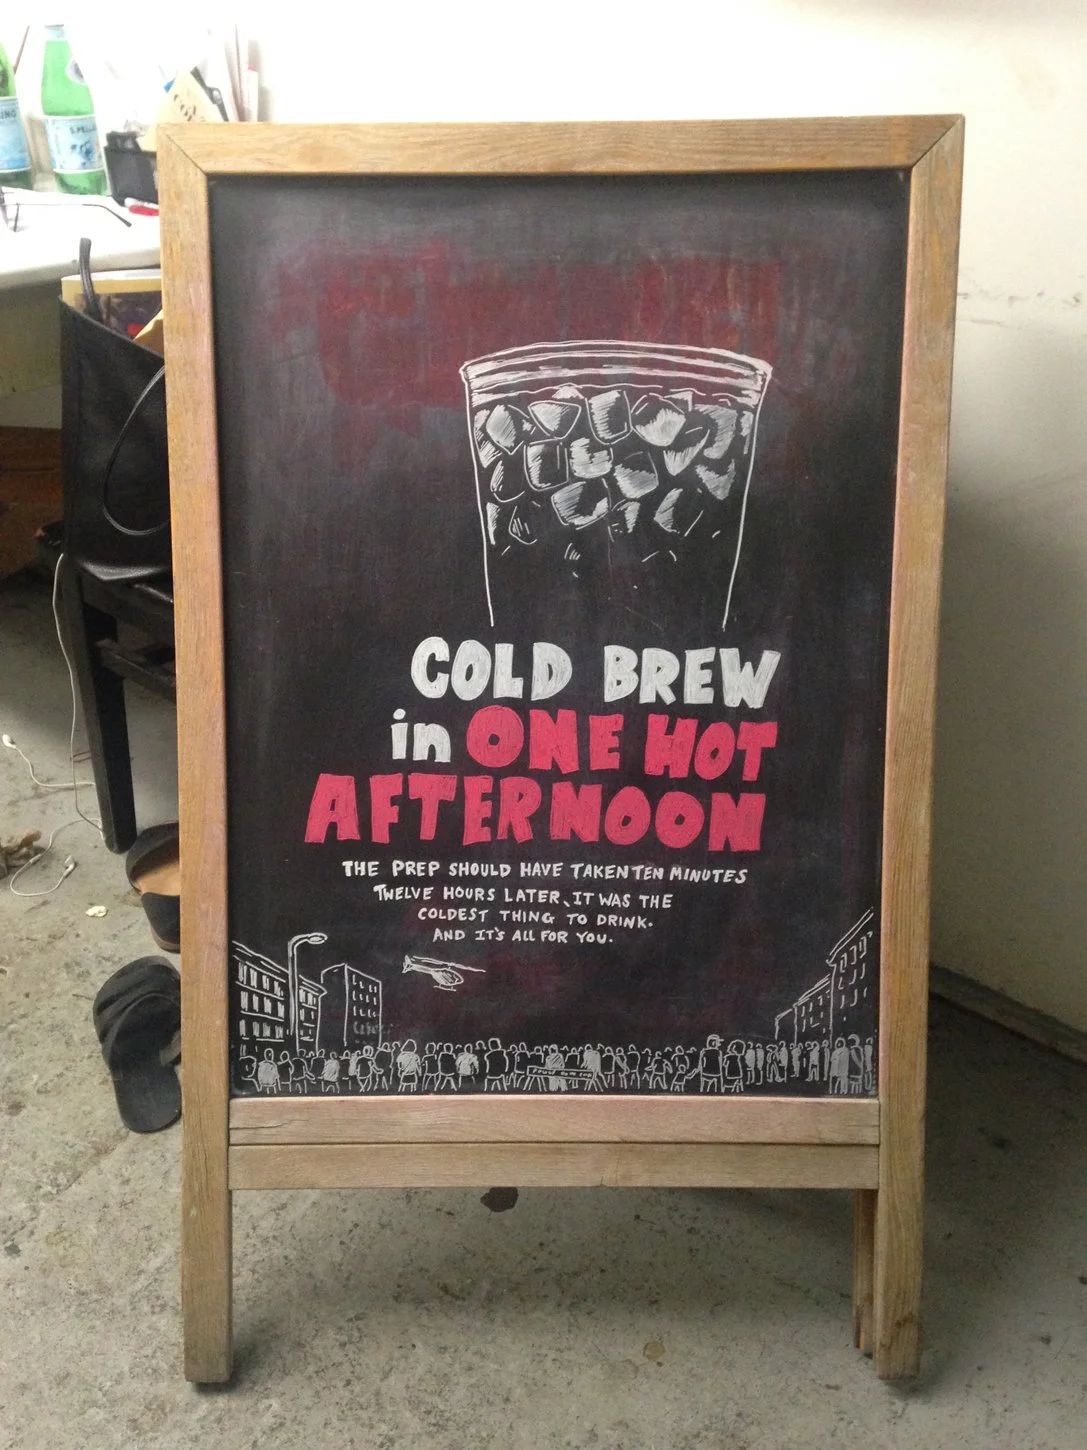 S.PELLE
COLD BREW
in ONE HOT
AFTERNOON
THE PREP SHOULD HAVE TAKEN TEN MINUTES
TWELVE HOURS LATER, IT WAS THE
COLDEST THING TO DRINK.
AND IT'S ALL FOR YOU.